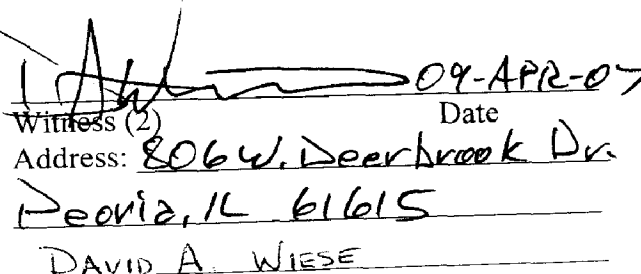 09-APR-07
Witness (2) Date
Address: 806 W. Deerbrook Dr.
Peoria, IL 61615
DAVID A. WIESE